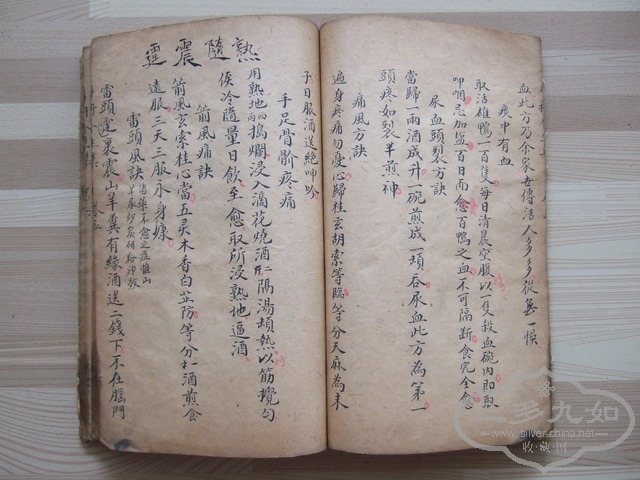 血此方乃余家世傳活人多多從無一悞
痰中有血
取活雄鴨一百隻每日清晨空服以一隻殺血碗內即取
呷嗯忌加盐百日而愈百鴨之血不可隔斷食完全愈
尿血頭裂方訣
當歸一兩酒成升一碗煎成一頓吞尿血此方為第一
頭疼如裂羊煎神
痛風方訣
遍身疼痛勿憂心歸桂玄胡索等臨等分天麻為末
子日服酒送絕呻吟
手足骨節疼痛
用熟地四兩搗爛浸入滴花燒酒二斤隔湯頓熱以筋攪匀
俟冷隨量日飲至愈取所浸熟地逼酒
箭風痛訣
箭風玄索桂心當五灵木香白芷防等分水酒煎食
遠服三天三服永身㝩
雷頭風訣
湯藥不愈之症惟山
羊屎炒炭研给冲破
雷頭裏震山羊糞有緣酒送二錢下不在腦門
熟隨震霆
毛九如
www.silver-china.net
收·藏·网